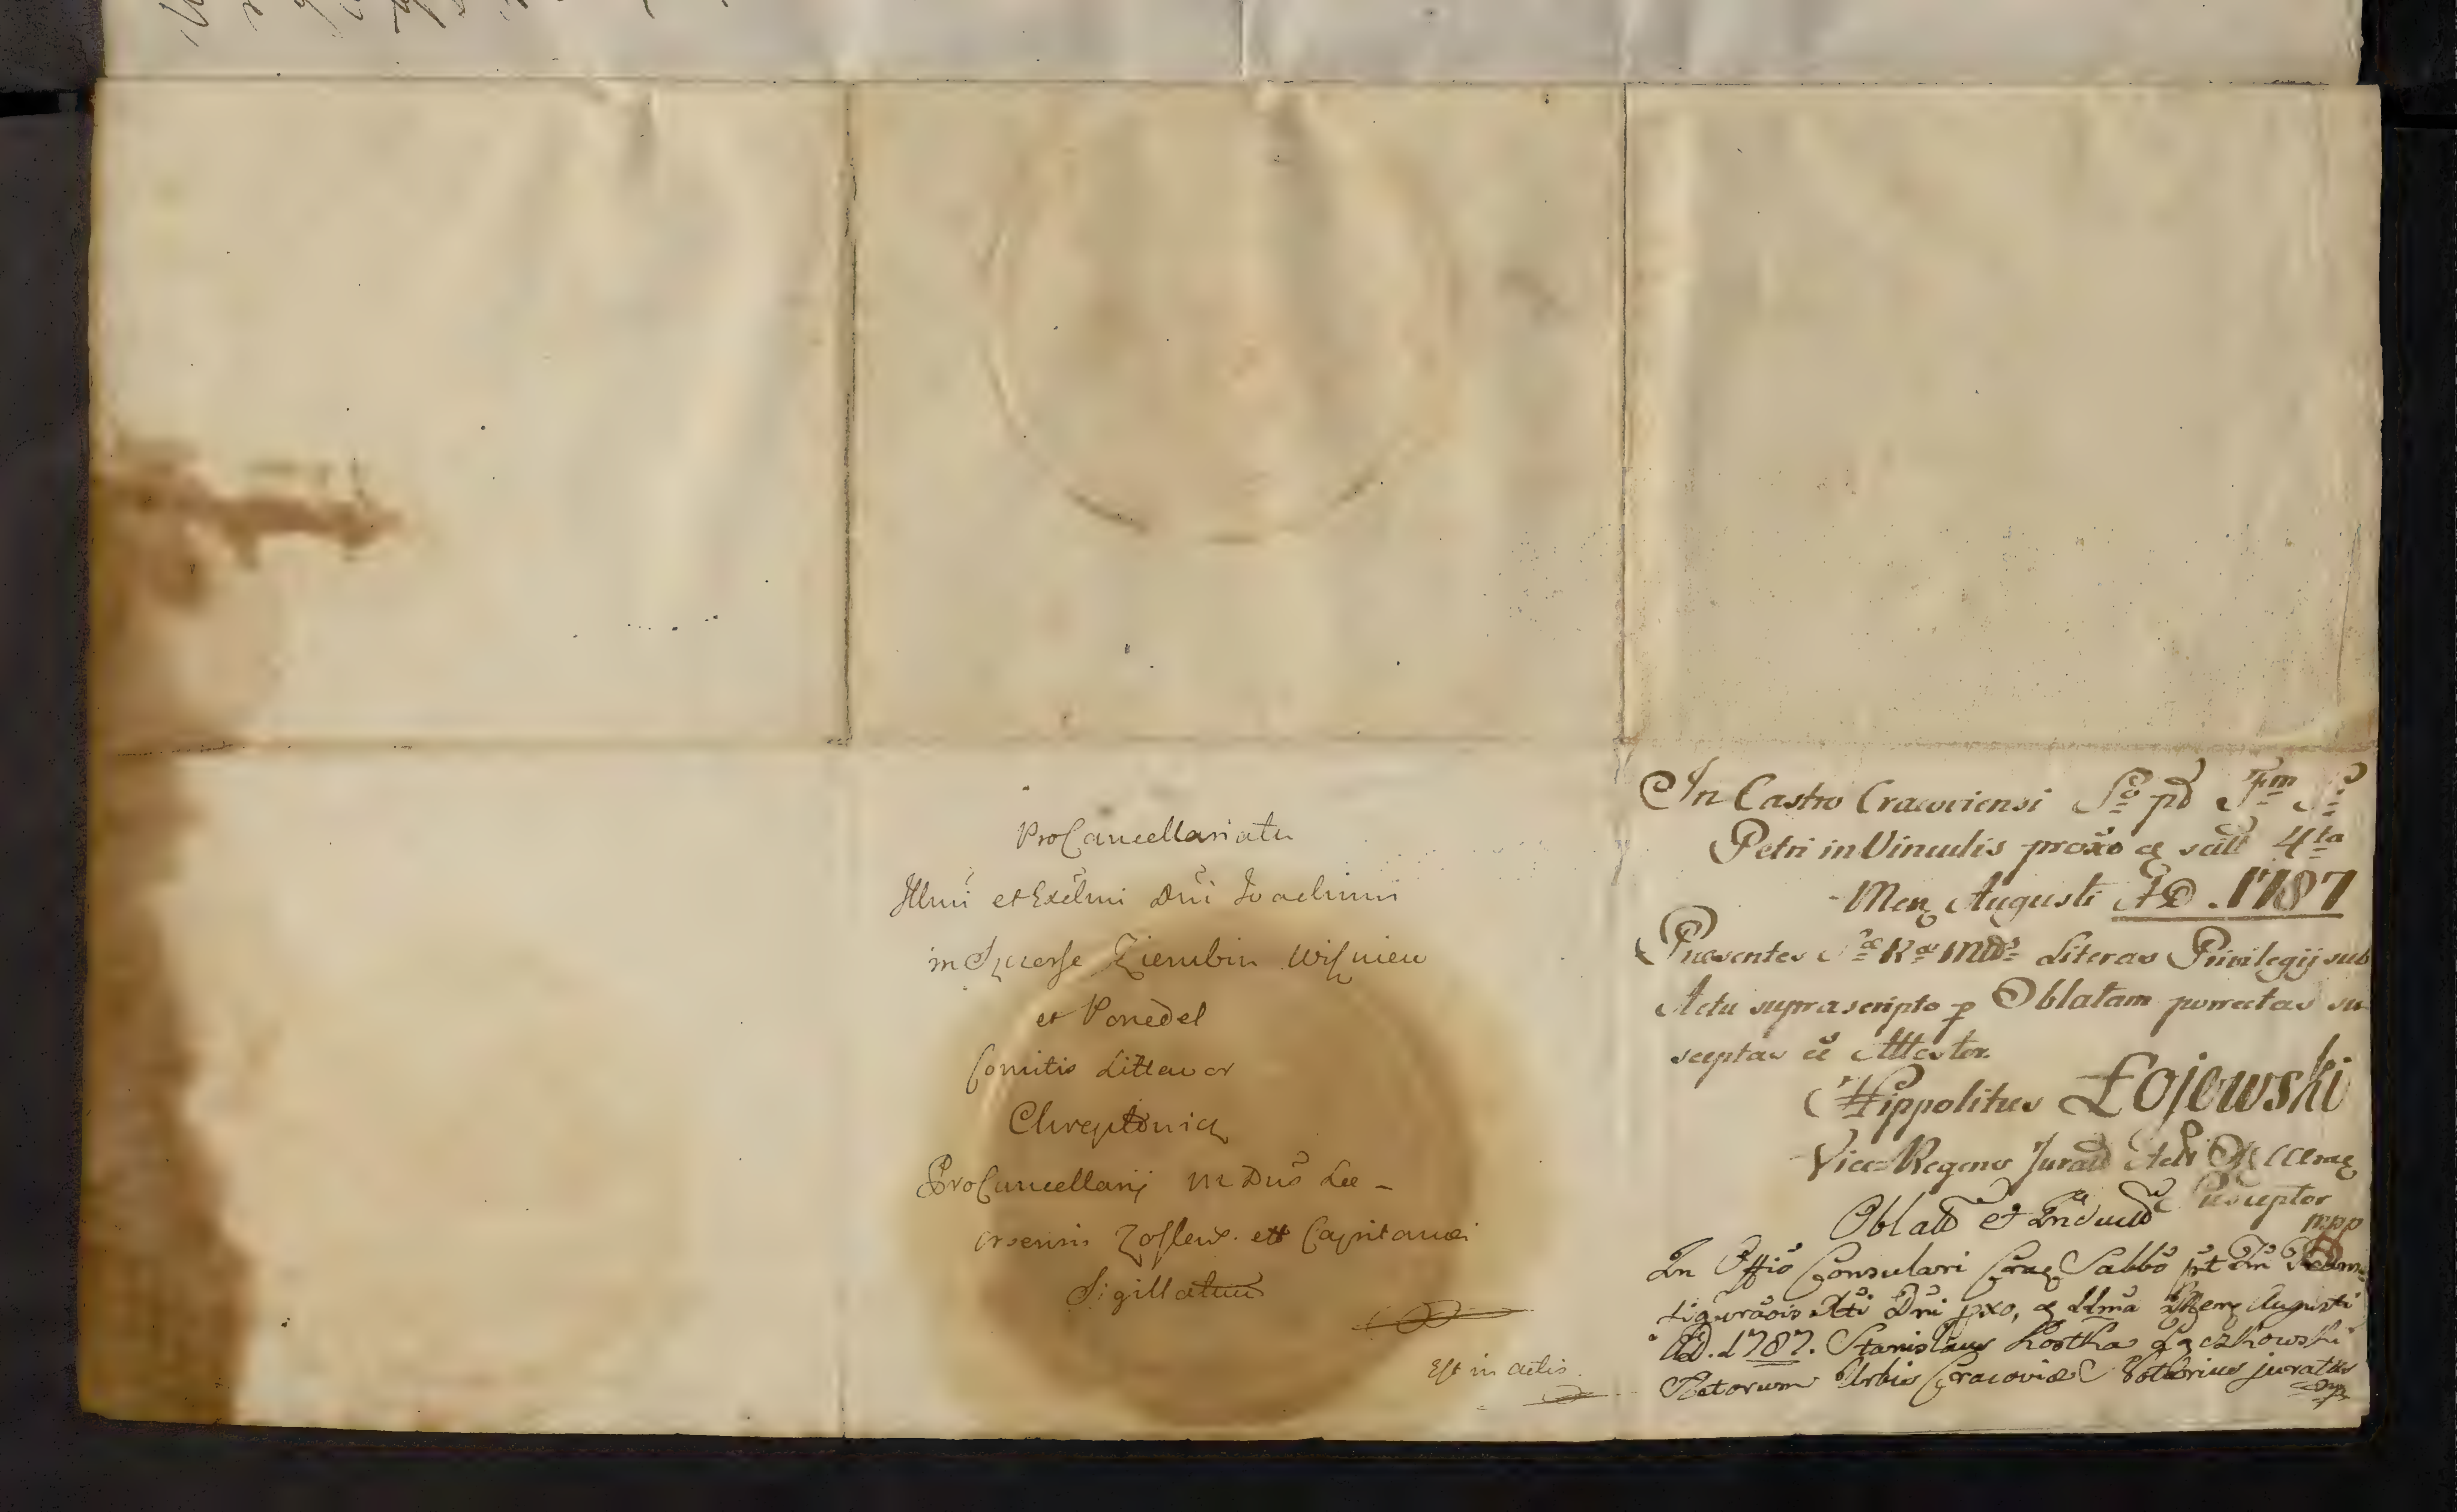 ProCancellariatu
Illmi et Excelmi Dni Joachimi
in Szczorse Zierubin Wiszniew
et Poniedel
Comitis Littawor
Chreptowicz
ProCancellarij M Dus Lit
Sigillatum
Est in actis
In Castro Cracoviensi Sbo pd Ftm Si
Petri in Vinculis proxo als scilt 4ta
Mens Augusti AD. 1787
Praesentes Sae Rae Mttis Literas Privilegij sub
Actu suprascripto p Oblatam porrectas su
sceptas ee Attestor.
Hippolitus Łojewski
Vice-Regens Jurat Crac
Susceptor
mpp
Oblatt et Induct
In Offio Consulari Crac Sabbo pt Tm Trans
figuraois Xti Dni pxo, d 11ma Mens Augusti
AD. 1787. Stanislaus Kostka Łączkowski
Actorum Urbis Cracoviae Notarius juratus
mp